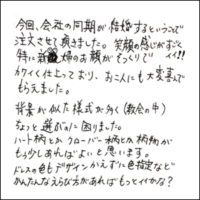 今回、会社の同期が結婚するということで
注文させて頂きました。笑顔の感じがすごくイイ!!
特に新婦のお顔がそっくりで
カワイく仕上っており、お二人にも大変喜んで
もらえました。
背景が似た様式が多く(教会の中)
ちょっと選ぶのに困りました。
ハート柄とか、クローバー柄とか、柄物が
もう少しあればよいと思います。
ドレスの色もデザインかえずに色指定など
かんたんなえらび方があればもっとイイかな?